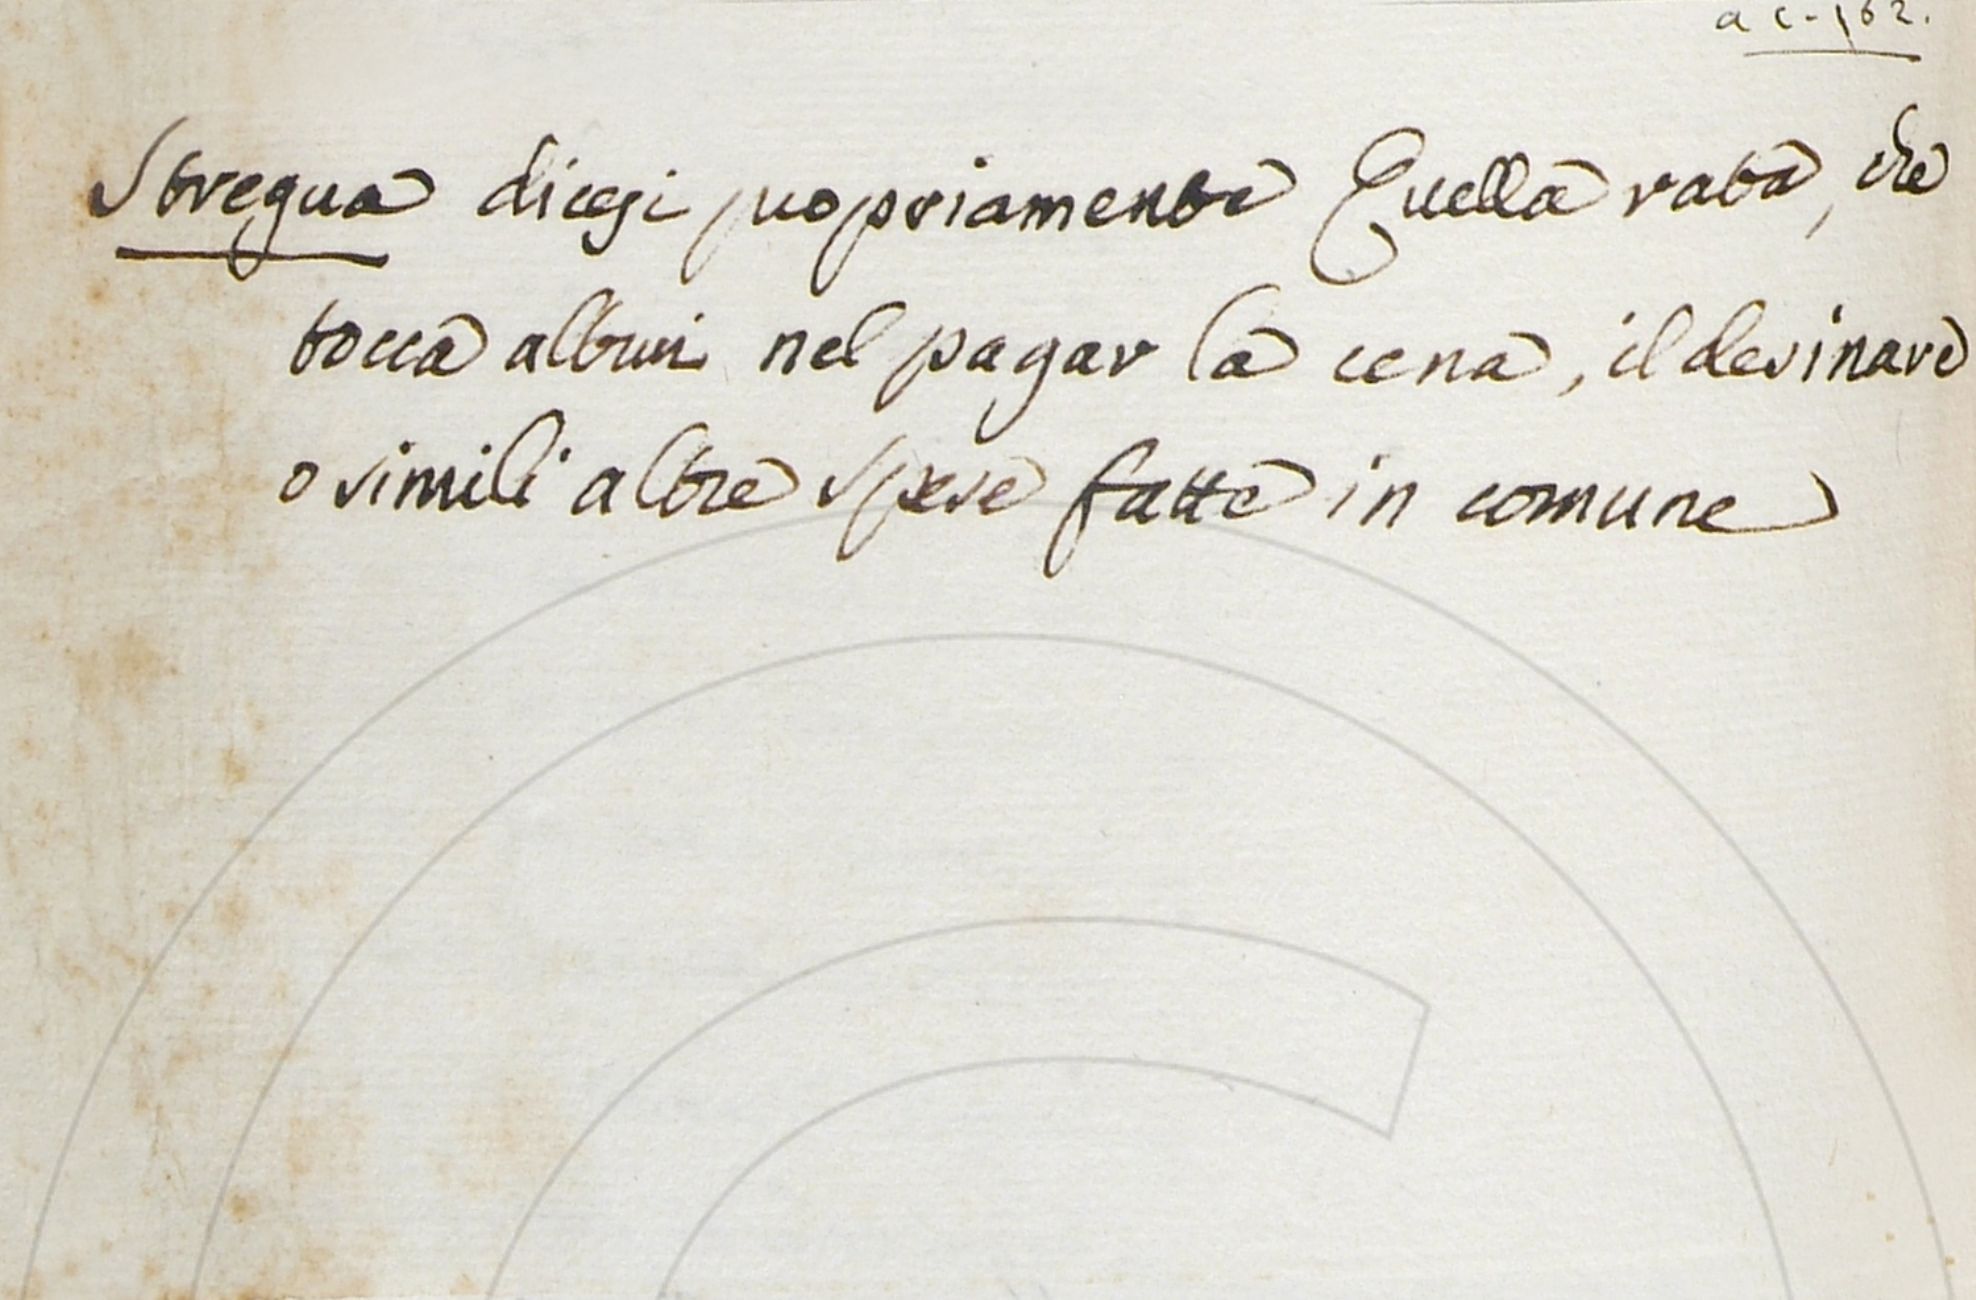 a c. 162.
Stregua dicesi propriamente Quella rata, che
tocca altrui nel pagar la cena, il desinare
o simili altre spese fatte in comune